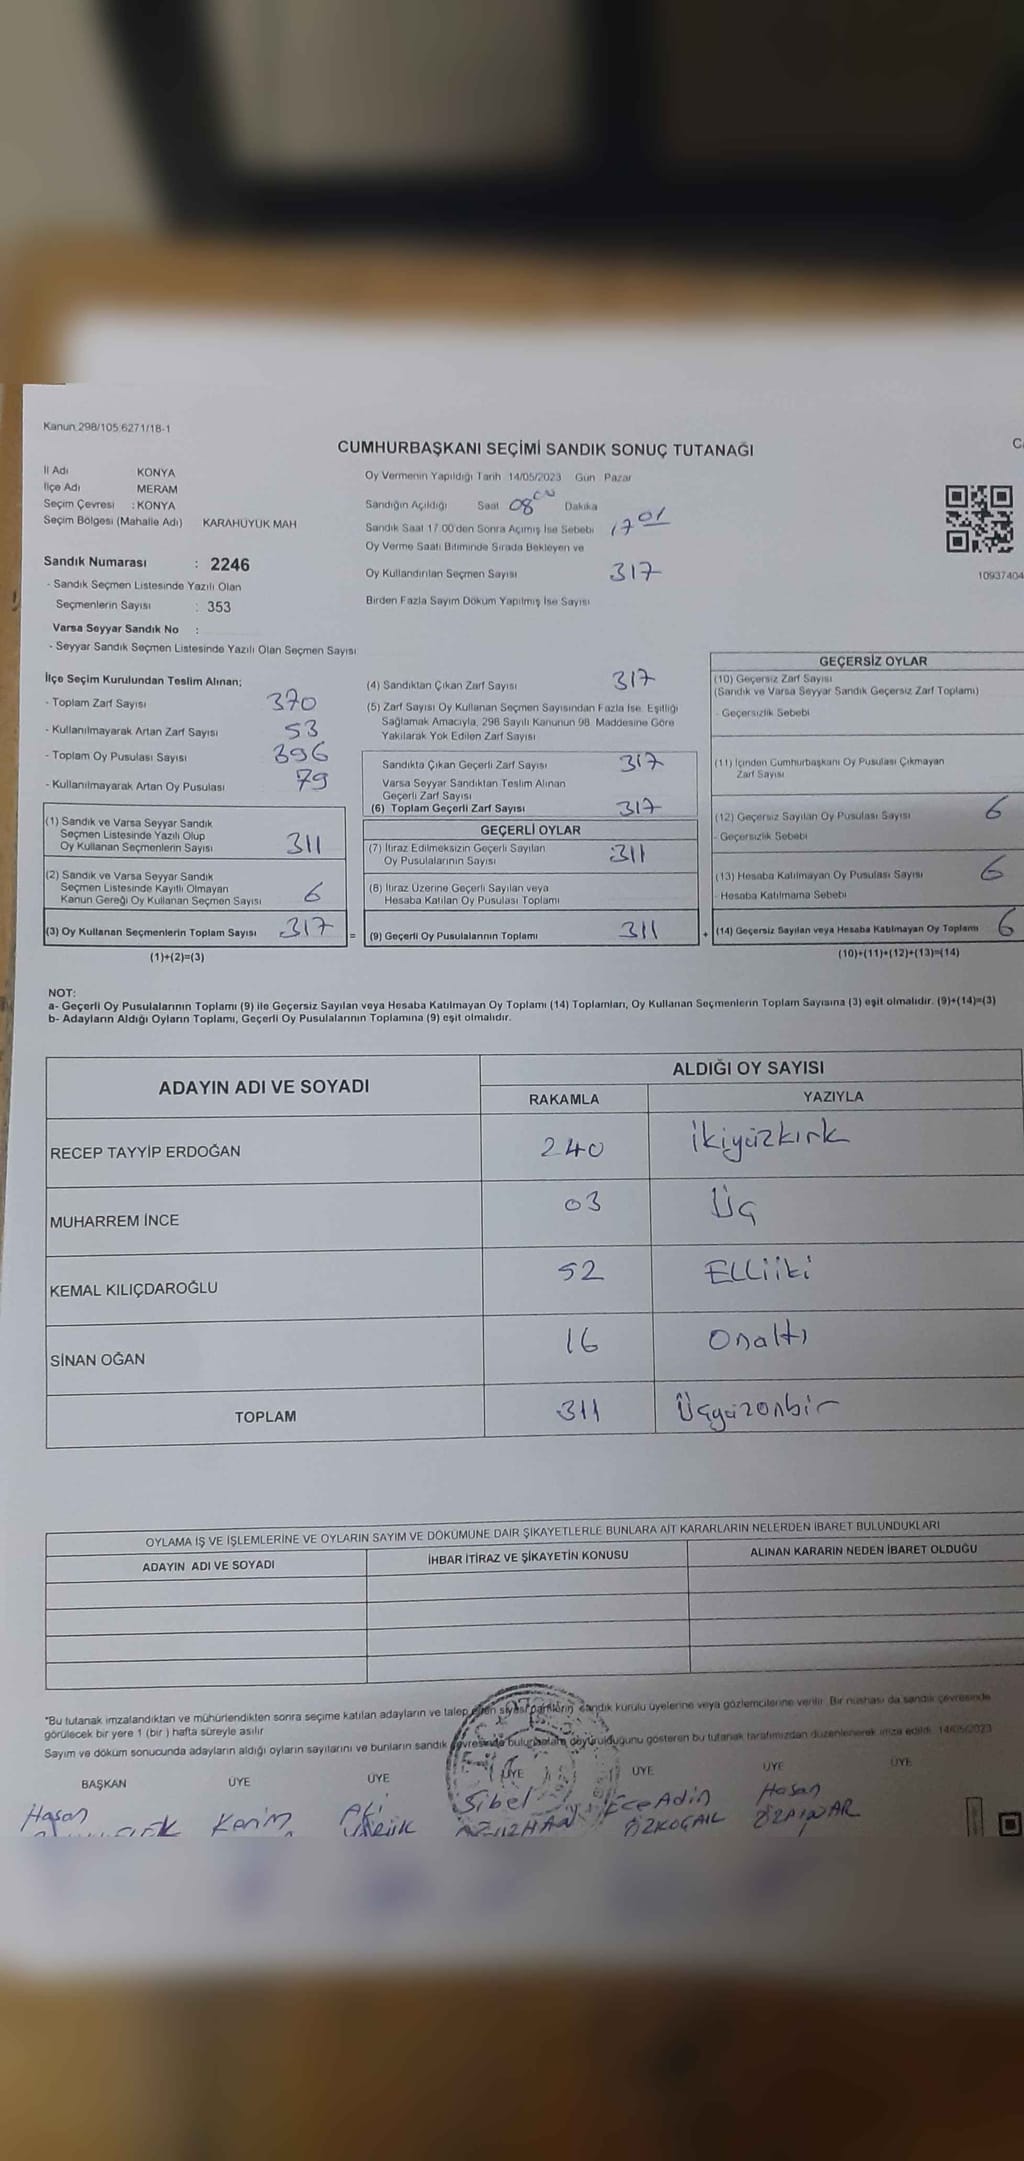 Kanun 298/105 6271/18-1
CUMHURBAŞKANI SEÇİMİ SANDIK SONUÇ TUTANAĞI
İl Adı KONYA
İlçe Adı MERAM
Seçim Çevresi : KONYA
Seçim Bölgesi (Mahalle Adı) KARAHÜYÜK MAH
Oy Vermenin Yapıldığı Tarih 14/05/2023 Gün Pazar
Sandığın Açıldığı Saat 08 Dakika
Sandık Saat 17.00'den Sonra Açımış İse Sebebi 1701
Oy Verme Saati Bitiminde Sırada Bekleyen ve
Oy Kullandırılan Seçmen Sayısı 317
Birden Fazla Sayım Döküm Yapılmış İse Sayısı
10937404
Sandık Numarası : 2246
- Sandık Seçmen Listesinde Yazılı Olan
Seçmenlerin Sayısı : 353
Varsa Seyyar Sandık No :
- Seyyar Sandık Seçmen Listesinde Yazılı Olan Seçmen Sayısı
İlçe Seçim Kurulundan Teslim Alınan;
- Toplam Zarf Sayısı 370
- Kullanılmayarak Artan Zarf Sayısı 53
- Toplam Oy Pusulası Sayısı 396
- Kullanılmayarak Artan Oy Pusulası 79
(1) Sandık ve Varsa Seyyar Sandık
Seçmen Listesinde Yazılı Olup
Oy Kullanan Seçmenlerin Sayısı 311
(2) Sandık ve Varsa Seyyar Sandık
Seçmen Listesinde Kayıtlı Olmayan
Kanun Gereği Oy Kullanan Seçmen Sayısı 6
(3) Oy Kullanan Seçmenlerin Toplam Sayısı 317 =
(1)+(2)=(3)
(4) Sandıktan Çıkan Zarf Sayısı 317
(5) Zarf Sayısı Oy Kullanan Seçmen Sayısından Fazla İse, Eşitliği
Sağlamak Amacıyla, 298 Sayılı Kanunun 98. Maddesine Göre
Yakılarak Yok Edilen Zarf Sayısı
Sandıkta Çıkan Geçerli Zarf Sayısı 317
Varsa Seyyar Sandıktan Teslim Alınan
Geçerli Zarf Sayısı
(6) Toplam Geçerli Zarf Sayısı 317
GEÇERLİ OYLAR
(7) İtiraz Edilmeksizin Geçerli Sayılan
Oy Pusulalarının Sayısı 311
(8) İtiraz Üzerine Geçerli Sayılan veya
Hesaba Katılan Oy Pusulası Toplamı
(9) Geçerli Oy Pusulalarının Toplamı 311 +
GEÇERSİZ OYLAR
(10) Geçersiz Zarf Sayısı
(Sandık ve Varsa Seyyar Sandık Geçersiz Zarf Toplamı)
- Geçersizlik Sebebi
(11) İçinden Cumhurbaşkanı Oy Pusulası Çıkmayan
Zarf Sayısı
(12) Geçersiz Sayılan Oy Pusulası Sayısı 6
- Geçersizlik Sebebi
(13) Hesaba Katılmayan Oy Pusulası Sayısı 6
- Hesaba Katılmama Sebebi
(14) Geçersiz Sayılan veya Hesaba Katılmayan Oy Toplamı 6
(10)+(11)+(12)+(13)=(14)
NOT:
a- Geçerli Oy Pusulalarının Toplamı (9) ile Geçersiz Sayılan veya Hesaba Katılmayan Oy Toplamı (14) Toplamları, Oy Kullanan Seçmenlerin Toplam Sayısına (3) eşit olmalıdır. (9)+(14)=(3)
b- Adayların Aldığı Oyların Toplamı, Geçerli Oy Pusulalarının Toplamına (9) eşit olmalıdır.
ADAYIN ADI VE SOYADI ALDIĞI OY SAYISI
RAKAMLA YAZIYLA
RECEP TAYYİP ERDOĞAN 240 ikiyüzkırk
MUHARREM İNCE 03 Üç
KEMAL KILIÇDAROĞLU 52 Elliiki
SİNAN OĞAN 16 Onaltı
TOPLAM 311 Üçyüzonbir
OYLAMA İŞ VE İŞLEMLERİNE VE OYLARIN SAYIM VE DÖKÜMÜNE DAİR ŞİKAYETLERLE BUNLARA AİT KARARLARIN NELERDEN İBARET BULUNDUKLARI
ADAYIN ADI VE SOYADI İHBAR İTİRAZ VE ŞİKAYETİN KONUSU ALINAN KARARIN NEDEN İBARET OLDUĞU
"Bu tutanak imzalandıktan ve mühürlendikten sonra seçime katılan adayların ve talep eden siyasi partilerin sandık kurulu üyelerine veya gözlemcilerine verilir. Bir nüshası da sandık çevresinde
görülecek bir yere 1 (bir ) hafta süreyle asılır
Sayım ve döküm sonucunda adayların aldığı oyların sayılarını ve bunların sandık çevresinde bulunanlara duyurulduğunu gösteren bu tutanak tarafımızdan düzenlenerek imza edildi. 14/05/2023
BAŞKAN ÜYE ÜYE ÜYE ÜYE ÜYE ÜYE
Hasan Kerim Sibel Hasan